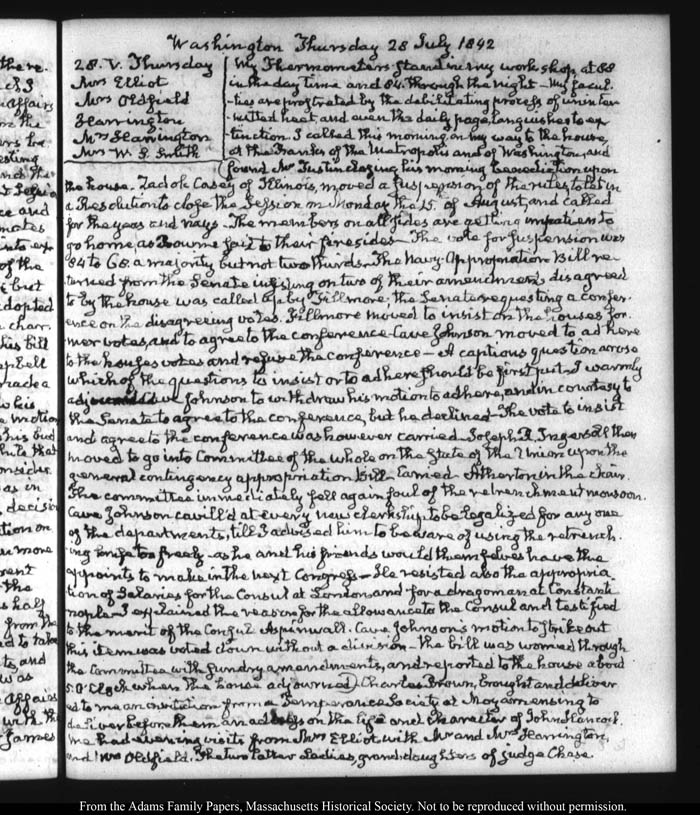 Washington Thursday 28 July 1842
28. V. Thursday
Mrs Elliot
Mrs Oldfield
Harrington
Mrs Harrington
Mrs W. S. Smith
My Thermometers stand in my work shop, at 88
in the day time and 84 through the night — My facul-
ties are prostrated by the debilitating process of uninter-
mitted heat, and even the daily page, languishes to ex-
tinction. I called this morning, on my way to the house,
at the Banks of the Metropolis and of Washington, and
found Mr Tustin closing his morning Benediction upon
the house. Zadok Casey of Illinois, moved a suspension of the rules to let in
a Resolution to close the Session on Monday the 15. of August, and called
for the yeas and nays. The members on all sides are getting impatient to
go home, as Bowne said to their firesides — The vote for suspension was
84 to 68. a majority but not two thirds. The Navy-Appropriation Bill re-
turned from the Senate insisting on two of their amendments disagreed
to by the house was called up by Fillmore; the Senate requesting a confer-
ence on the disagreeing votes. Fillmore moved to insist on the houses for-
mer votes, and to agree to the conference. Cave Johnson moved to adhere
to the houses votes and refuse the conference — A captious question arose
which of the questions to insist or to adhere should be first put. I warmly
Cave Johnson to withdraw his motion to adhere, and in courtesy to
the Senate to agree to the conference, but he declined — The vote to insist
and agree to the conference was however carried. Joseph R. Ingersoll then
moved to go into Committee of the whole on the State of the Union upon the
general contingency appropriation Bill. Carried. Atherton in the chair.
The committee immediately fell again foul of the retrenchment monsoon.
Cave Johnson cavill'd at every new clerkship to be legalized for any one
of the departments, till I advised him to beware of using the retrench-
ing knife too freely — as he and his friends would themselves have the
appoints to make in the next Congress — He resisted also the appropria-
tion of Salaries for the Consul at London and for a dragoman at Constanti-
nople. I explained the reason for the allowance to the Consul and testified
to the merit of the Consul Aspinwall. Cave Johnson's motion to strike out
this item was voted down without a division — the bill was worried through
the Committee with sundry amendments, and reported to the house about
5 O'Clock when the house adjourned. Charles Brown, brought and deliver-
ed to me an invitation from a Temperance Society at Moyamensing to
deliver before them an address on the life and character of John Hancock.
We had evening visits from Mrs Elliot with Mr and Mrs Harrington,
and Mrs Oldfield. The two latter Ladies, grand-daughters of judge Chase.
From the Adams Family Papers, Massachusetts Historical Society. Not to be reproduced without permission.